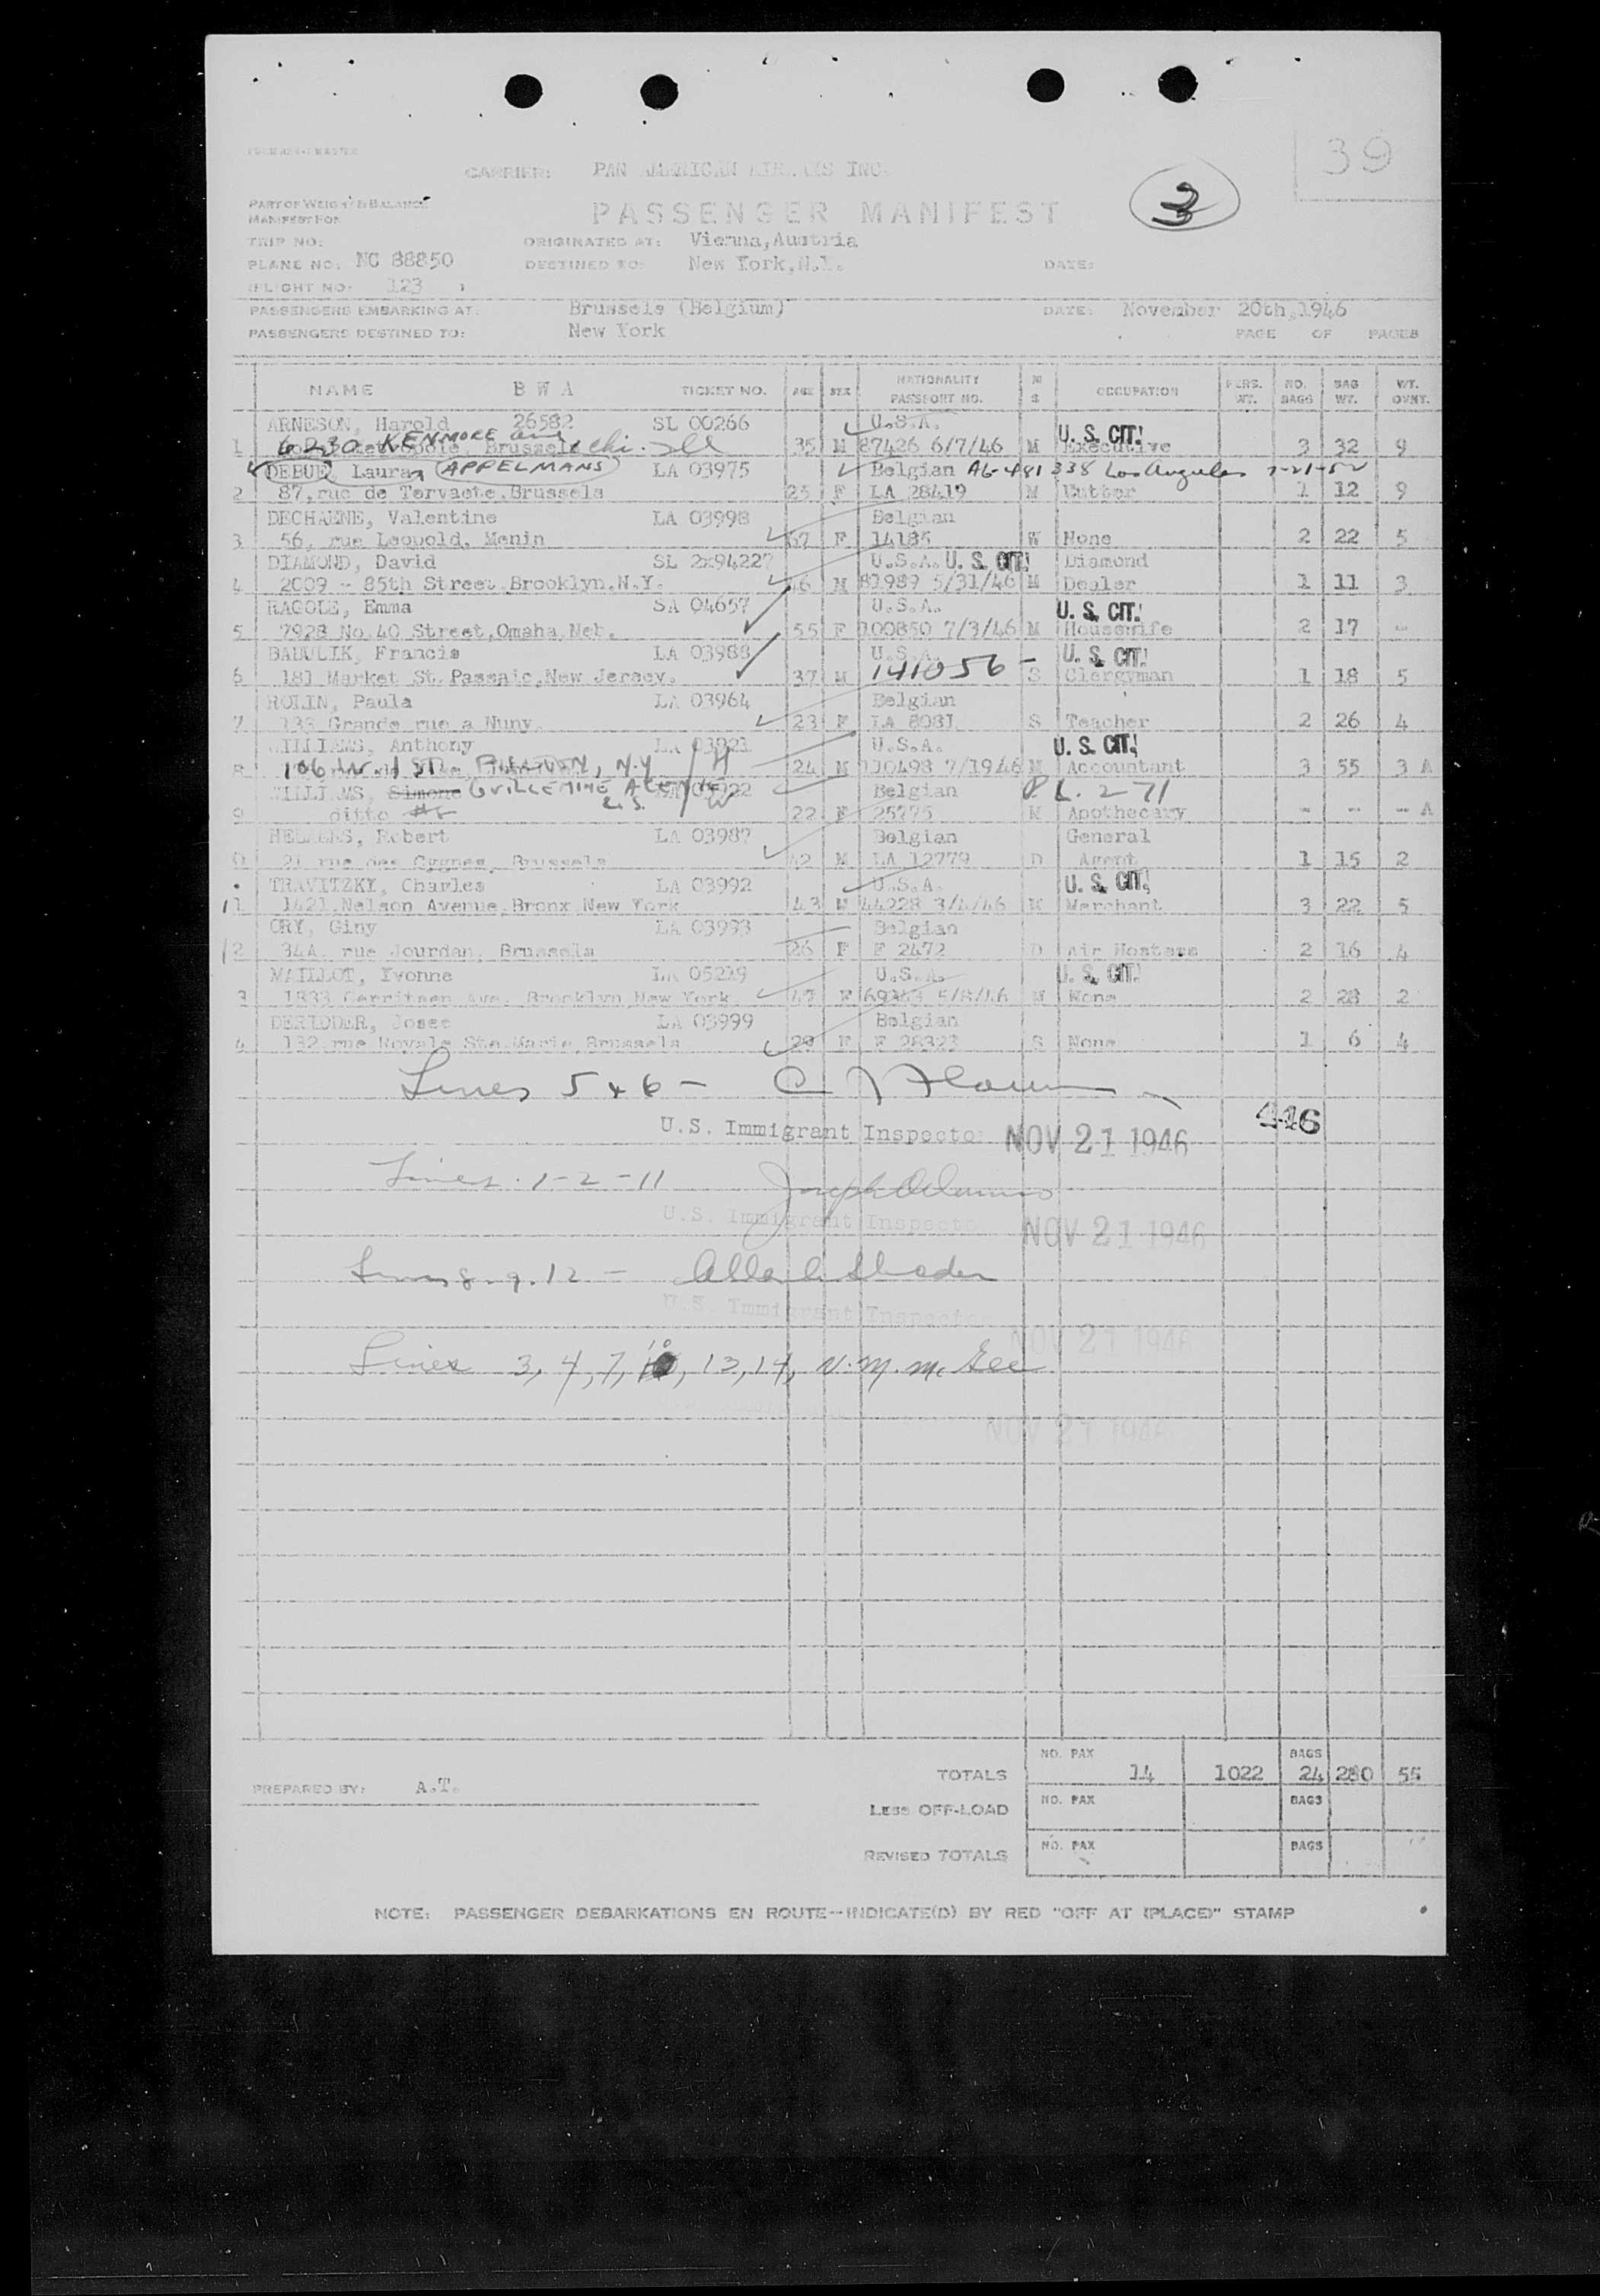 39
CARRIER: PAN AMERICAN INC.
3
PART OF WEIGHT & BALANCE
MANIFEST FOR
PASSENGER MANIFEST
TRIP NO:
ORIGINATED AT: Vienna, Austria
PLANE NO: NC 88850
DESTINED TO: New York, N.Y.
DATE:
(FLIGHT NO: 123 )
PASSENGERS EMBARKING AT: Brussels (Belgium) DATE: November 20th, 1946
PASSENGERS DESTINED TO: New York PAGE OF PAGES
NAME B W A TICKET NO. AGE SEX NATIONALITY PASSPORT NO. M S OCCUPATION PERS. WT. NO. BAGS BAG WT. WT. OVNT.
ARNESON, Harold 26582 SL 00266 U.S.A. U. S. CIT!
1 6230 KENMORE ave Chi. Ill 35 M 87426 6/7/46 M Executive 3 32 9
DEBUE, Laura APPELMANS LA 03975 Belgian AG-481338 Los Angeles
2 87, rue de Tervaete, Brussels 25 F LA 28419 M Cutter 1 12 9
DECHAENE, Valentine LA 03998 Belgian
3 56, rue Leopold, Menin 67 F 14185 W None 2 22 5
DIAMOND, David SL 2x94227 U.S.A. U. S. CIT! Diamond
4 2009 - 85th Street, Brooklyn, N.Y. 46 M 81989 5/31/46 M Dealer 1 11 3
RAGOLE, Emma SA 04657 U.S.A. U. S. CIT!
5 7928 No 40 Street, Omaha, Neb. 55 F 100850 7/3/46 M Housewife 2 17 -
Francis LA 03988 U.S.A. U. S. CIT!
6 181 Market St. Passaic, New Jersey. 37 M 141056 - S Clergyman 1 18 5
ROLIN, Paula LA 03964 Belgian
7 133 Grande rue a Nuny. 23 F LA 8081 S Teacher 2 26 4
WILLIAMS, Anthony LA 03921 U.S.A. U. S. CIT!
8 106 W ST. N.Y 24 M 110498 7/19/46 M Accountant 3 55 3 A
WILLIAMS, Simone GUILLEMINE Belgian P L. 271
9 ditto 22 F 25775 M Apothecary - - - A
Robert LA 03987 Belgian General
0 21 rue des Cygnes, Brussels 42 M LA 12779 D Agent 1 15 2
TRAVITZKY, Charles LA 03992 U.S.A. U. S. CIT!
11 1421, Nelson Avenue, Bronx New York 43 M 44228 3/4/46 M Merchant 3 22 5
ORY, Giny LA 03993 Belgian
12 34A, rue Jourdan, Brussels 26 F F 2472 D Air Hostess 2 16 4
MAILLOT, Yvonne LA 05219 U.S.A. U. S. CIT!
3 1833 Gerritsen Ave. Brooklyn, New York 47 F 5/8/46 M None 2 28 2
DERIDDER, Josee LA 03999 Belgian
4 132, rue Royale Ste. Marie, Brussels 29 F F 28323 S None 1 6 4
Lines 5 & 6 -
U.S. Immigrant Inspector NOV 21 1946 446
Lines 1-2-11
U.S. Immigrant Inspector NOV 21 1946
Lines 8. 9. 12 -
U.S. Immigrant Inspector NOV 21 1946
Lines 3, 4, 7, 10, 13, 14, V. M. McGee
NOV 21 1946
PREPARED BY: A.T.
TOTALS NO. PAX 14 1022 BAGS 24 280 55
LESS OFF-LOAD NO. PAX BAGS
REVISED TOTALS NO. PAX BAGS
NOTE: PASSENGER DEBARKATIONS EN ROUTE--INDICATE(D) BY RED "OFF AT (PLACE)" STAMP